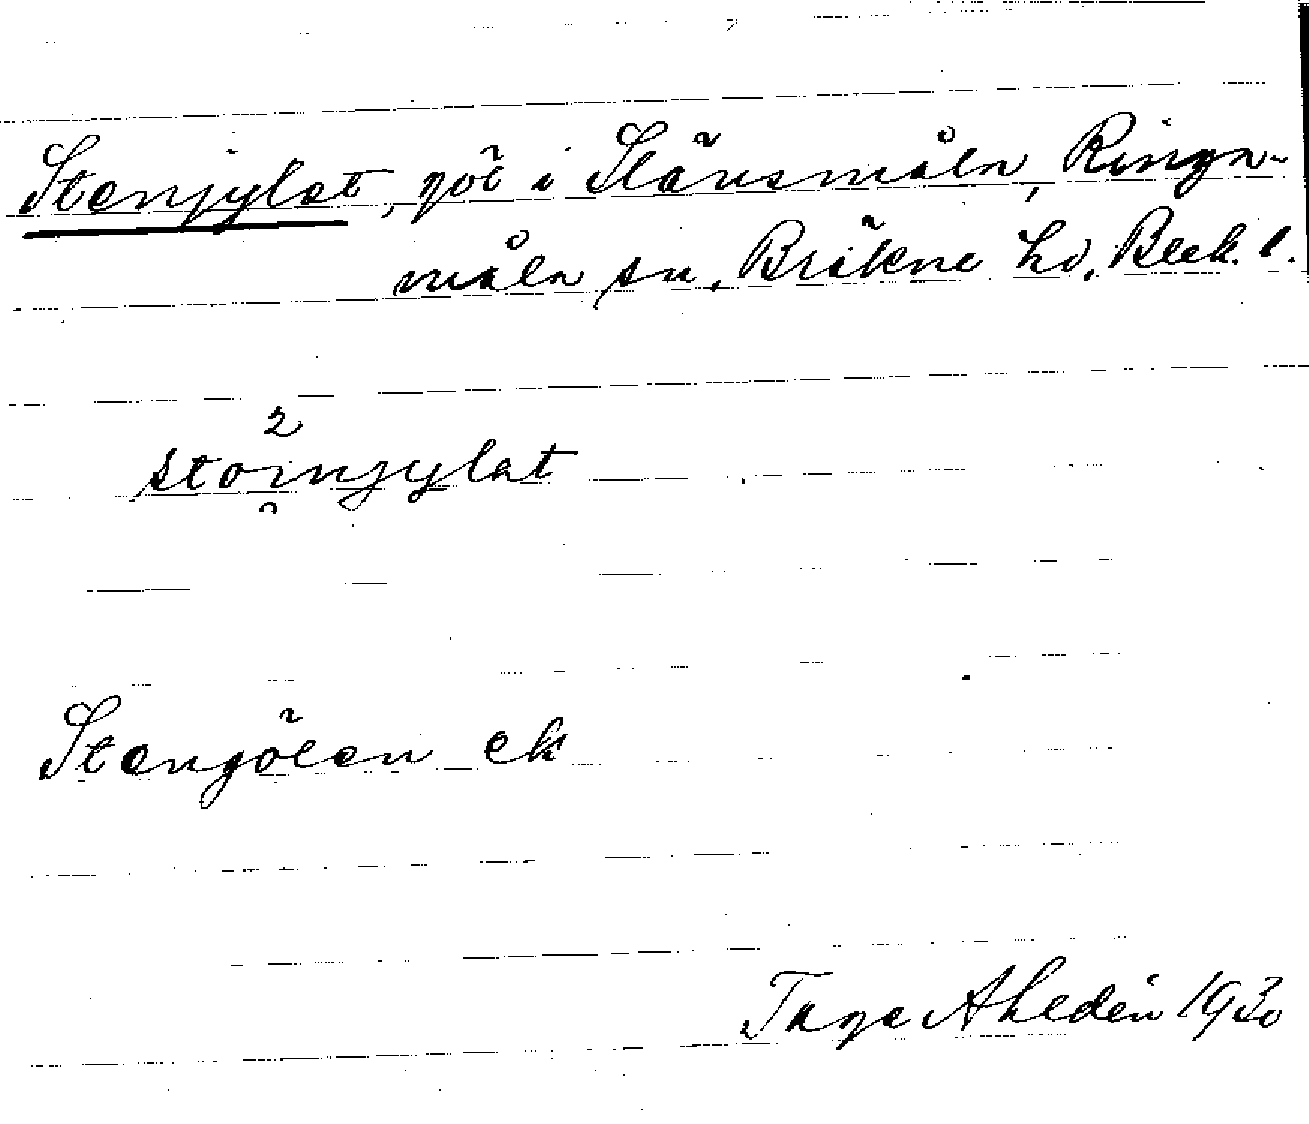 Stenjylet, göl i Slänsmåla, Ringa-
måla sn, Bräkne hd, Blek. l.
stoinjylat
Stengölen ek
Tage Ahldén 1930